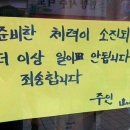 준비한 체력이 소진되
더 이상 일이 안됩니다
죄송합니다
주인